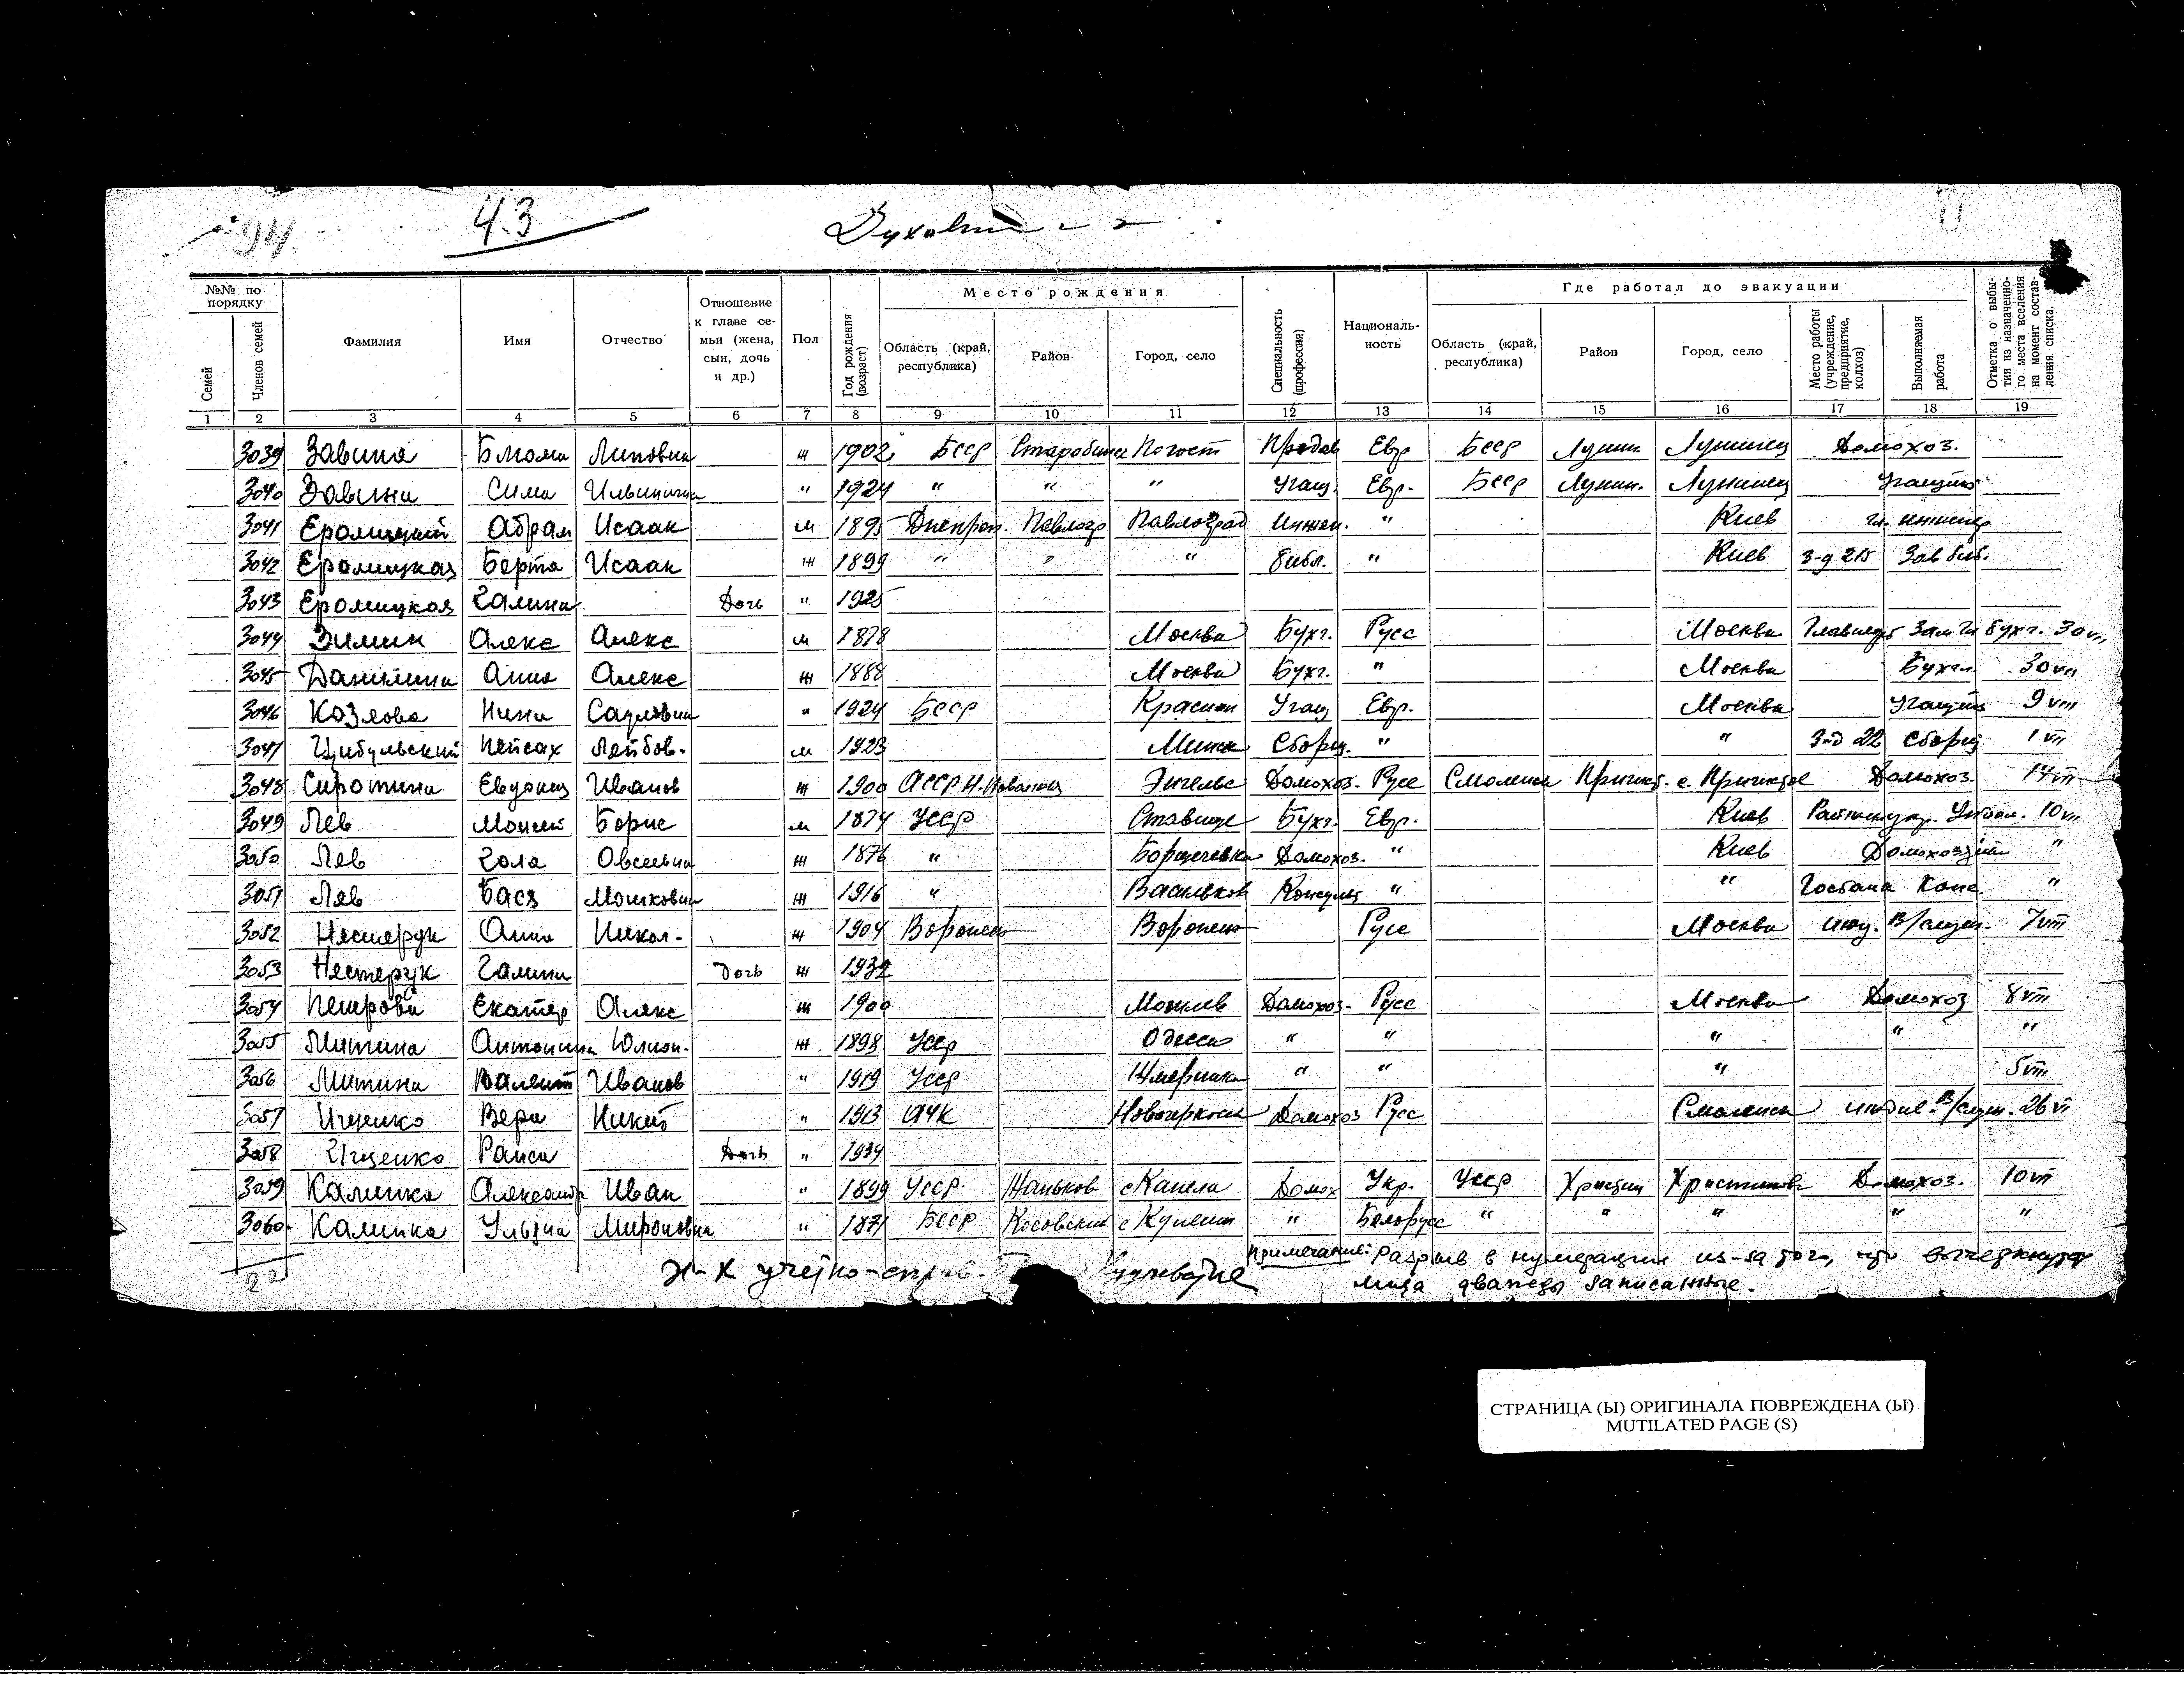 94
43
№№ по порядку
Семей
Членов семей
Фамилия
Имя
Отчество
Отношение к главе се-мьи (жена, сын, дочь и др.)
Пол
Год рождения (возраст)
Место рождения
Область (край, республика)
Район
Город, село
Специальность (профессия)
Националь-ность
Где работал до эвакуации
Область (край, республика)
Район
Город, село
Место работы (учреждение, предприятие, колхоз)
Выполняемая работа
Отметка о выбы-тии из назначенно-го места вселения на момент состав-ления списка.
1 2 3 4 5 6 7 8 9 10 11 12 13 14 15 16 17 18 19
3039 Завина Блюма Липовна ж 1902 Бсср Погост Продав Евр Бсср Лунин Лунинец Домохоз.
3040 Завина Сима Ильинична " 1924 " " " Учащ. Евр. Бсср Лунин. Лунинец Учащийся
3041 Абрам Исаак м 1895 Днепроп. Павлогр Павлоград Инжен. " Киев гл. инженер
3042 Еромицкая Берта Исаак ж 1899 " " " библ. " Киев з-д 215 Зав биб.
3043 Еромицкая Галина Дочь " 1925
3044 Зимин Алекс Алекс м 1878 Москва Бухг. Русс Москва Зам Гл бухг. 30 VII
3045 Данилина Анна Алекс ж 1888 Москва Бухг. " Москва Бухгл. 30 VII
3046 Козлова Нина " 1924 Бсср Учащ Евр. Москва Учащийся 9 VIII
3047 Цибульский Пейсах Лейбов. м 1923 Минск Сборщ. " " З-д 22 Сборщ
3048 Сиротина Евдокия Иванов ж 1900 Энгельс Домохоз. Русс Смоленск Домохоз.
3049 Лев Моисей Борис м 1874 Усср Ставище Бухг. Евр. Киев
3050 Лев Голда Овсеевна ж 1876 " Борщаговка Домохоз. " Киев Домохозяйка "
3051 Лев Бася Мошковна ж 1916 " Васильков " " Конс. "
3052 Нестерук Анна Никол. ж 1904 Воронеж Воронеж Русс Москва в/служ. 7 VIII
3053 Нестерук Галина Дочь ж 1932
3054 Петрова Екатер Алекс ж 1900 Могилев Домохоз. Русс Москва Домохоз 8 VIII
3055 Митина Антонина Юлиан. ж 1898 Усср Одесса " " " " "
3056 Митина Валент Иванов " 1919 Усср Жмеринка " " " 5 VIII
3057 Ищенко Вера Никит " 1913 АЧК Новочеркасск Домохоз Русс Смоленск в/служ.
3058 Ищенко Раиса Дочь " 1934
3059 Калинка Александр Иван " 1899 Усср. с Капели Домох Укр. Усср Христин Христиновк Домохоз.
3060. Калинка Ульяна Мироновна " 1871 Бсср Косовский " Белорусс " " " " "
22
Н-к учетно-справ.
Примечание: Разрыв в нумерации из-за того, что вычеркнуты
лица дважды записанные.
СТРАНИЦА (Ы) ОРИГИНАЛА ПОВРЕЖДЕНА (Ы)
MUTILATED PAGE (S)